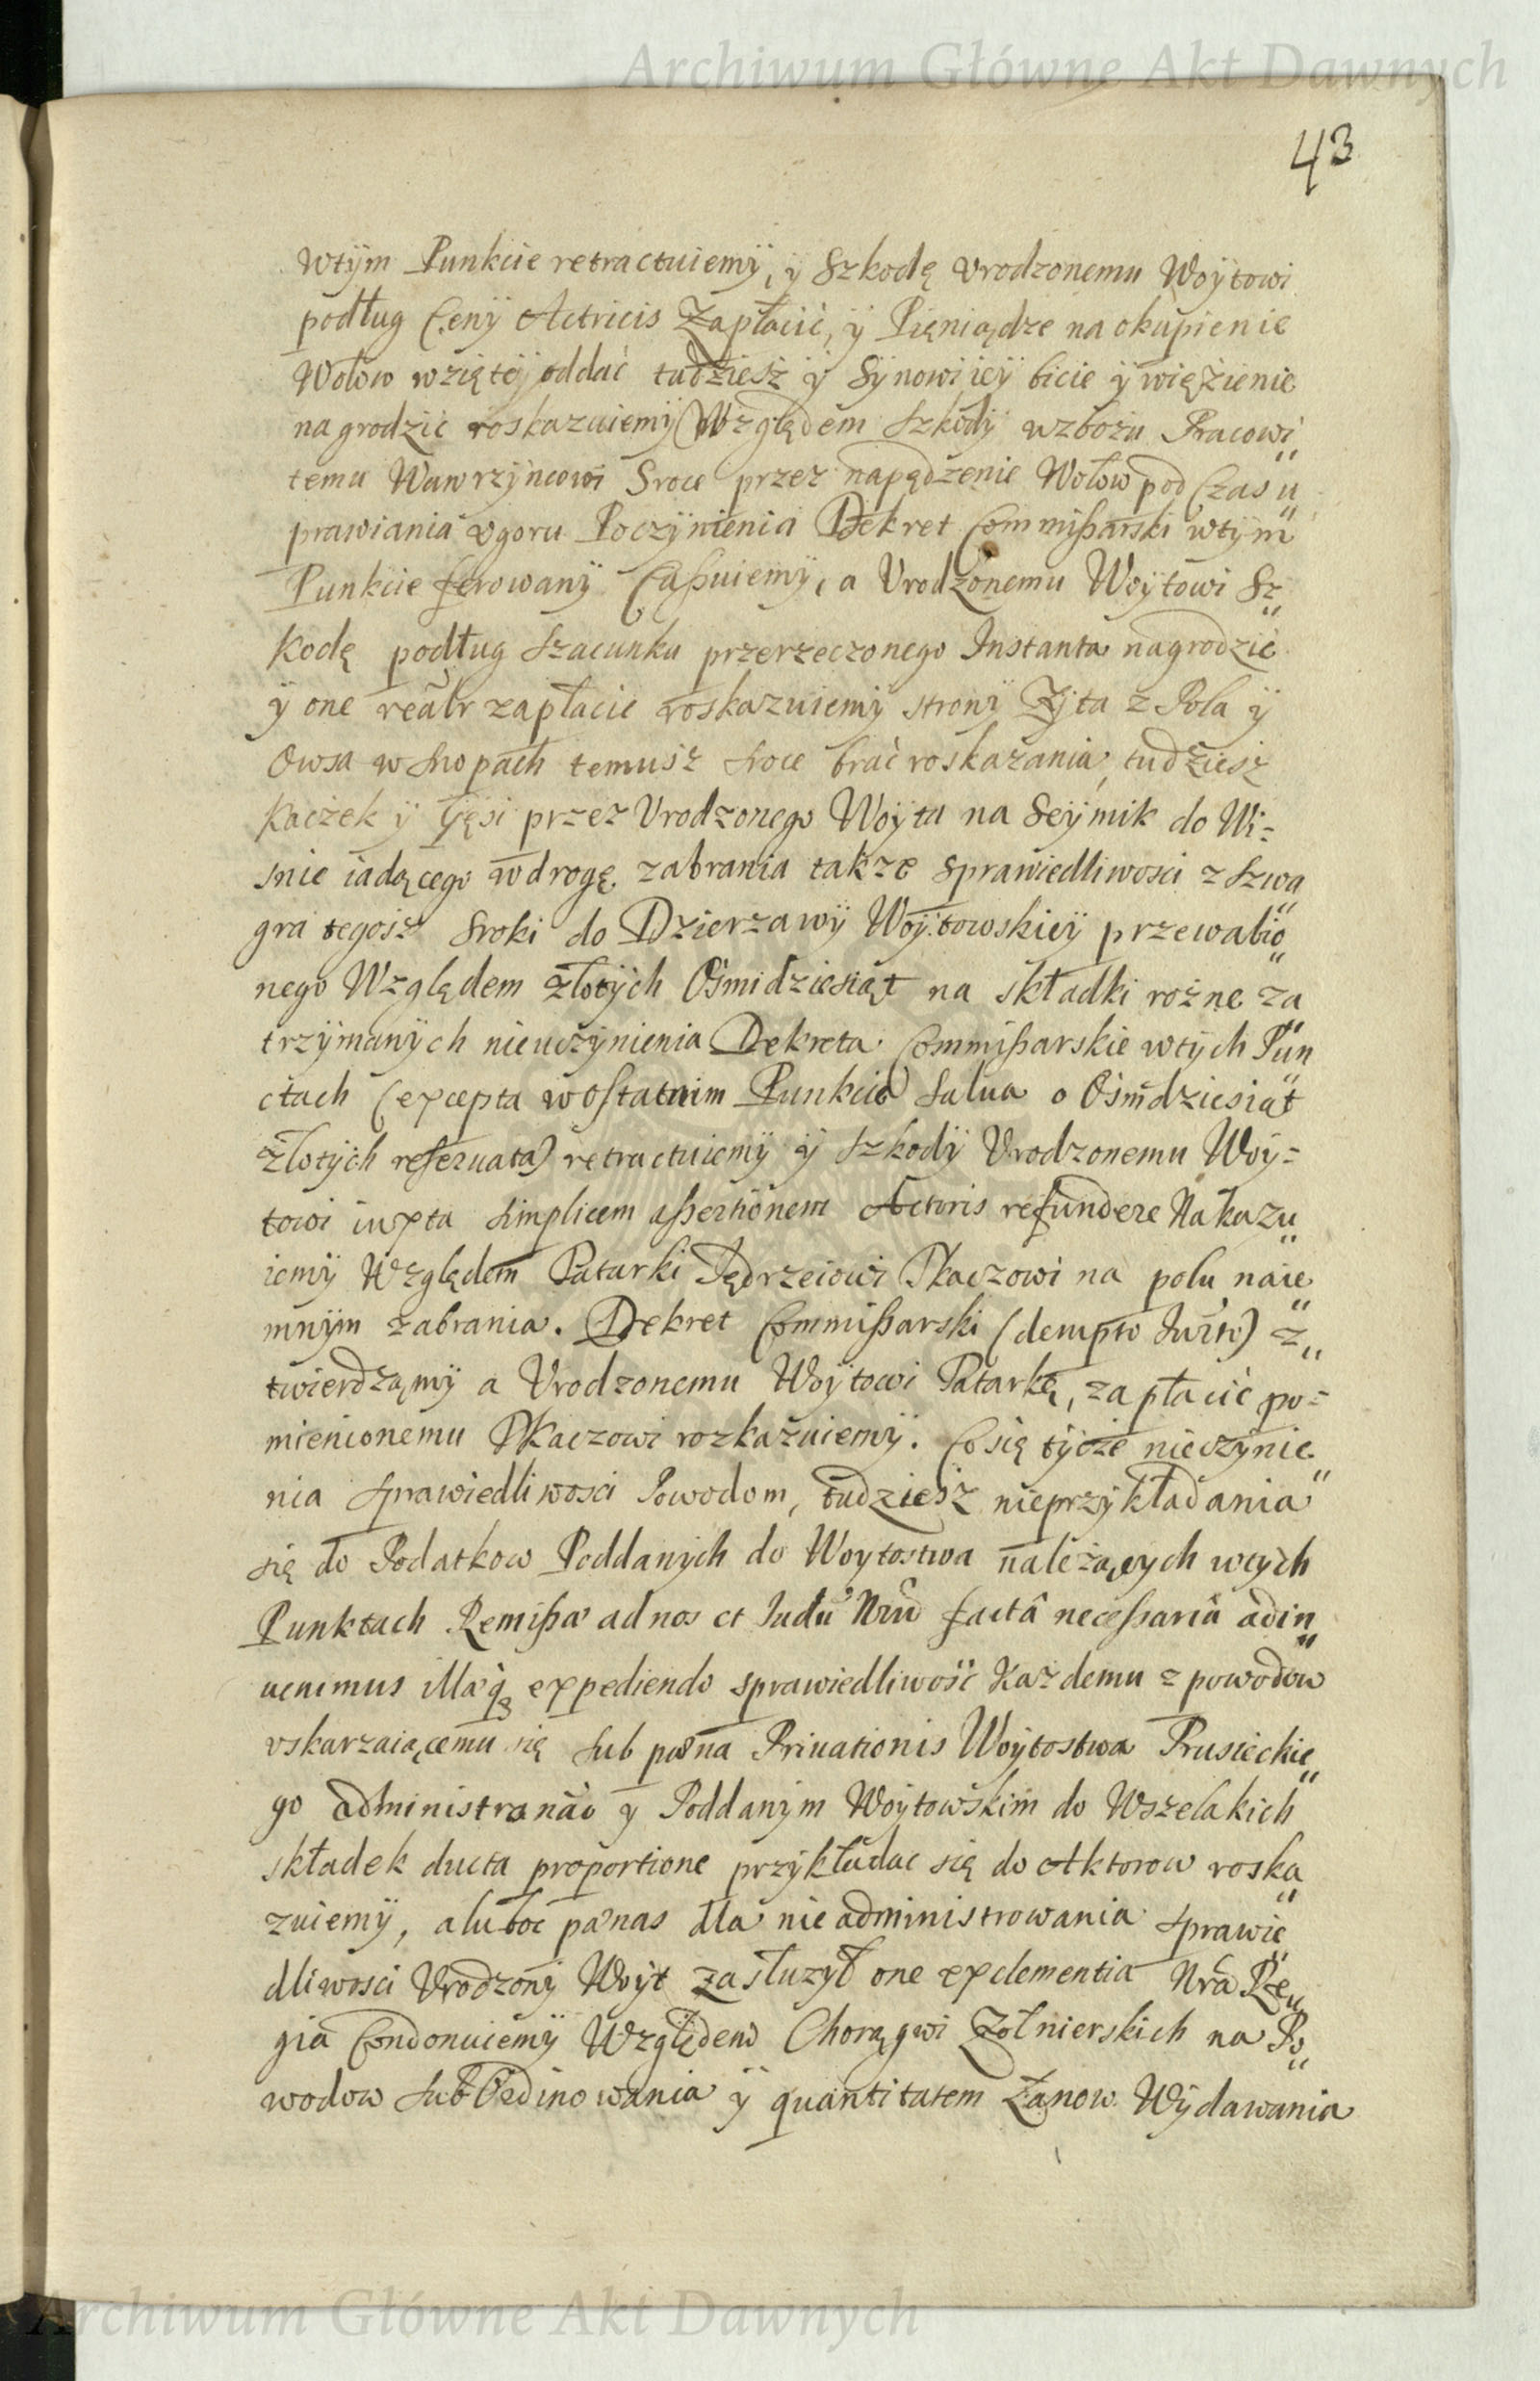 Archiwum Główne Akt Dawnych
43
wtÿm Punkcie retractuiemÿ, ÿ Szkodę vrodzonemu Woÿtowi
podług Cenÿ Actricis Zapłacić, ÿ Pieniądze na okupienie
Wołow wziętej oddać tudziesz ÿ Sÿnowi ieÿ bicie ÿ więzienie
nagrodzić roskazuiemÿ Względem szkodÿ wzbożu Pracowi„
temu Wawrzÿncowi Sroce przez napędzenie Wołow pod Czas u„
prawiania vgoru Poczÿnienia Dekret Commißarski wtÿm
Punkcie ferowanÿ Caßuiemÿ, a Vrodzonemu Woÿtowi Sz„
kodę podług szacunku przerzeczonego Instanta nagrodzić
ÿ one realr zapłacic roskazuiemÿ stronÿ Zÿta z Pola ÿ
Owsa w snopach temusz sroce brać roskazania, tudziesz
Kaczek ÿ Gęsi przez Vrodzonego Woÿta na Seÿmik do Wi=
snie iadącego wdrogę zabrania takze sprawiedliwosci z szwa„
gra tegosz Sroki do Dzierzawÿ Woÿtowskieÿ przewabio„
nego Względem złotÿch Osmidziesiąt na składki rozne za„
trzÿmanÿch nieuczÿnienia Dekreta Commißarskie wtÿch Pun„
ctach (excepta wostatnim Punkcie Salua o Osmdziesiąt
złotÿch reseruata) retractuiemÿ ÿ szkodÿ Vrodzonemu Woÿ=
towi iuxta simplicem aßertionem Actoris refundere Nakazu„
iemÿ Względem Patarki Jędrzeiowi Tkaczowi na polu naie„
mnÿm zabrania. Dekret Commißarski (dempto Iurto) z„
twierdzamÿ a Vrodzonemu Woÿtowi Patarkę, zapłacić po=
mienionemu Tkaczowi rozkazuiemÿ. Co się tÿcze nieczÿnie„
nia sprawiedliwosci Powodom, tudziesz nieprzÿkładania
się do Podatkow Poddanÿch do Woÿtostwa nalezących wtÿch
Punktach Remißa ad nos et Iudiũ Nrũ factâ neceßariâ adin„
uenimus illaq₃ expediendo sprawiedliwość Kazdemu z powodow
vskarzaiącemu się sub poena Priuationis Woÿtostwa Prusieckie„
go administranão ÿ Poddanÿm Woÿtowskim do Wszelakich
składek ducta proportione przÿkładac się do Aktorow roska„
zuiemÿ, a luboc paenas dla nie administrowania sprawie„
dliwosci Vrodzonÿ Woÿt zasłuzÿł one ex clementia Nrã Re„
gia Condonuiemÿ Względem Chorągwi Zołnierskich na Po„
wodow ÿ quantitatem Łanow Wÿdawania
Archiwum Główne Akt Dawnych